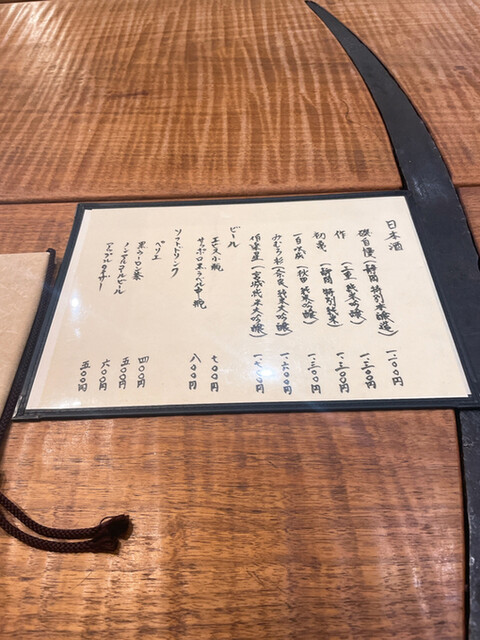 日本酒
磯自慢(静岡 特別本醸造) 一、一〇〇円
作 (三重 純米吟醸) 一、三〇〇円
初亀 (静岡 特別純米) 一、三〇〇円
一白水成 (秋田 純米吟醸) 一、三〇〇円
みむろ杉(奈良 純米大吟醸) 一、六〇〇円
伯楽星(宮城 純米大吟醸) 一、七〇〇円
ビール
ヱビス小瓶 七〇〇円
サッポロ黒ラベル中瓶 八〇〇円
ソフトドリンク
ペリエ
黒ウーロン茶 四〇〇円
ノンアルコールビール 五〇〇円
六〇〇円
五〇〇円